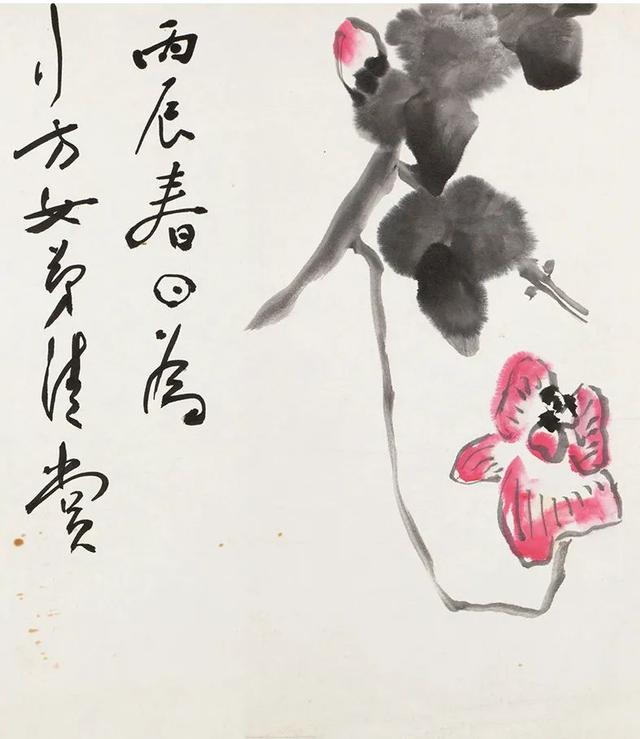 丙辰春日為
方女弟清賞